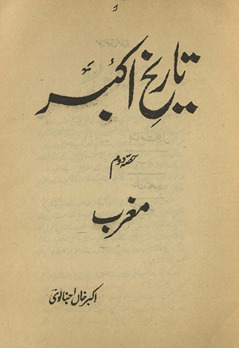 تاریخ اکبر
حصہ دوم
مغرب
اکبر خاں اجنالوی